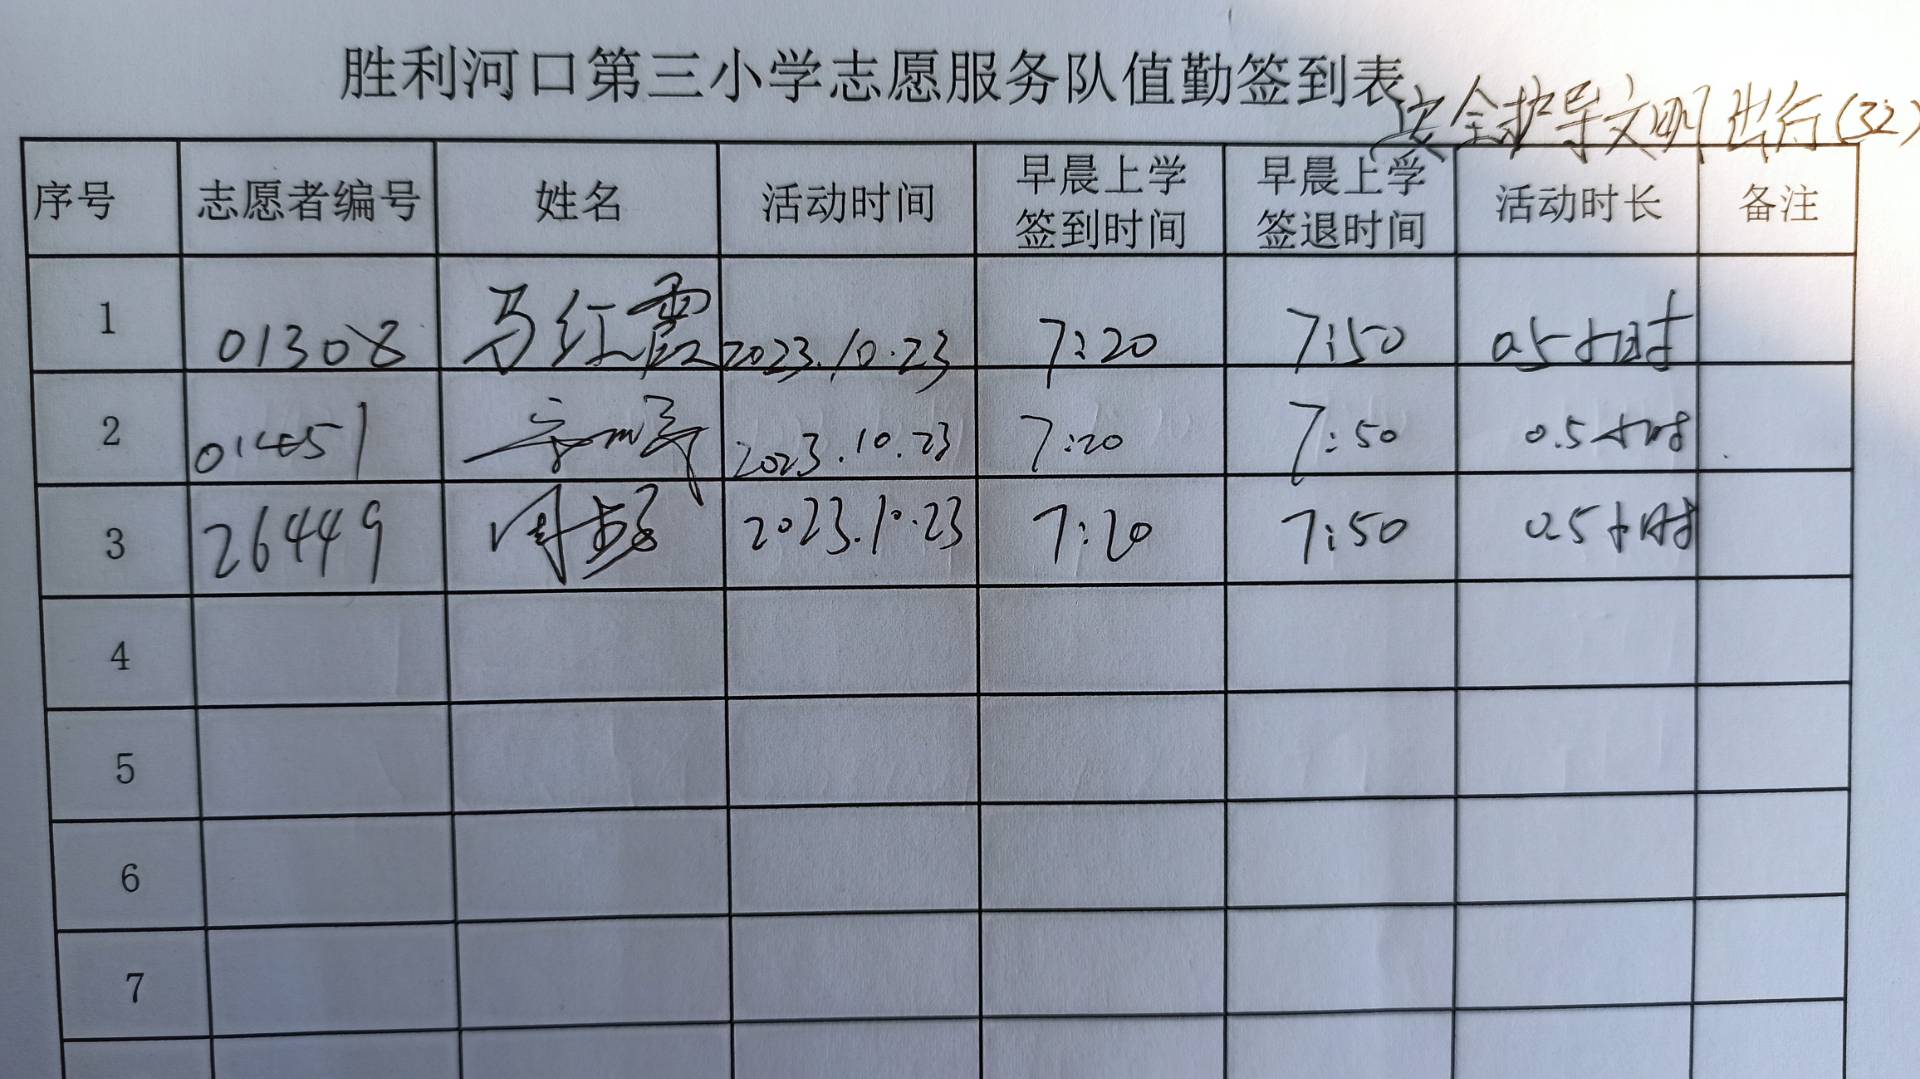 胜利河口第三小学志愿服务队值勤签到表
安全护导文明出行(32)
序号 志愿者编号 姓名 活动时间 早晨上学签到时间 早晨上学签退时间 活动时长 备注
1 01308 马红霞 2023.10.23 7:20 7:50 0.5小时
2 01451 2023.10.23 7:20 7:50 0.5小时
3 26449 周 2023.10.23 7:20 7:50 0.5小时
4
5
6
7